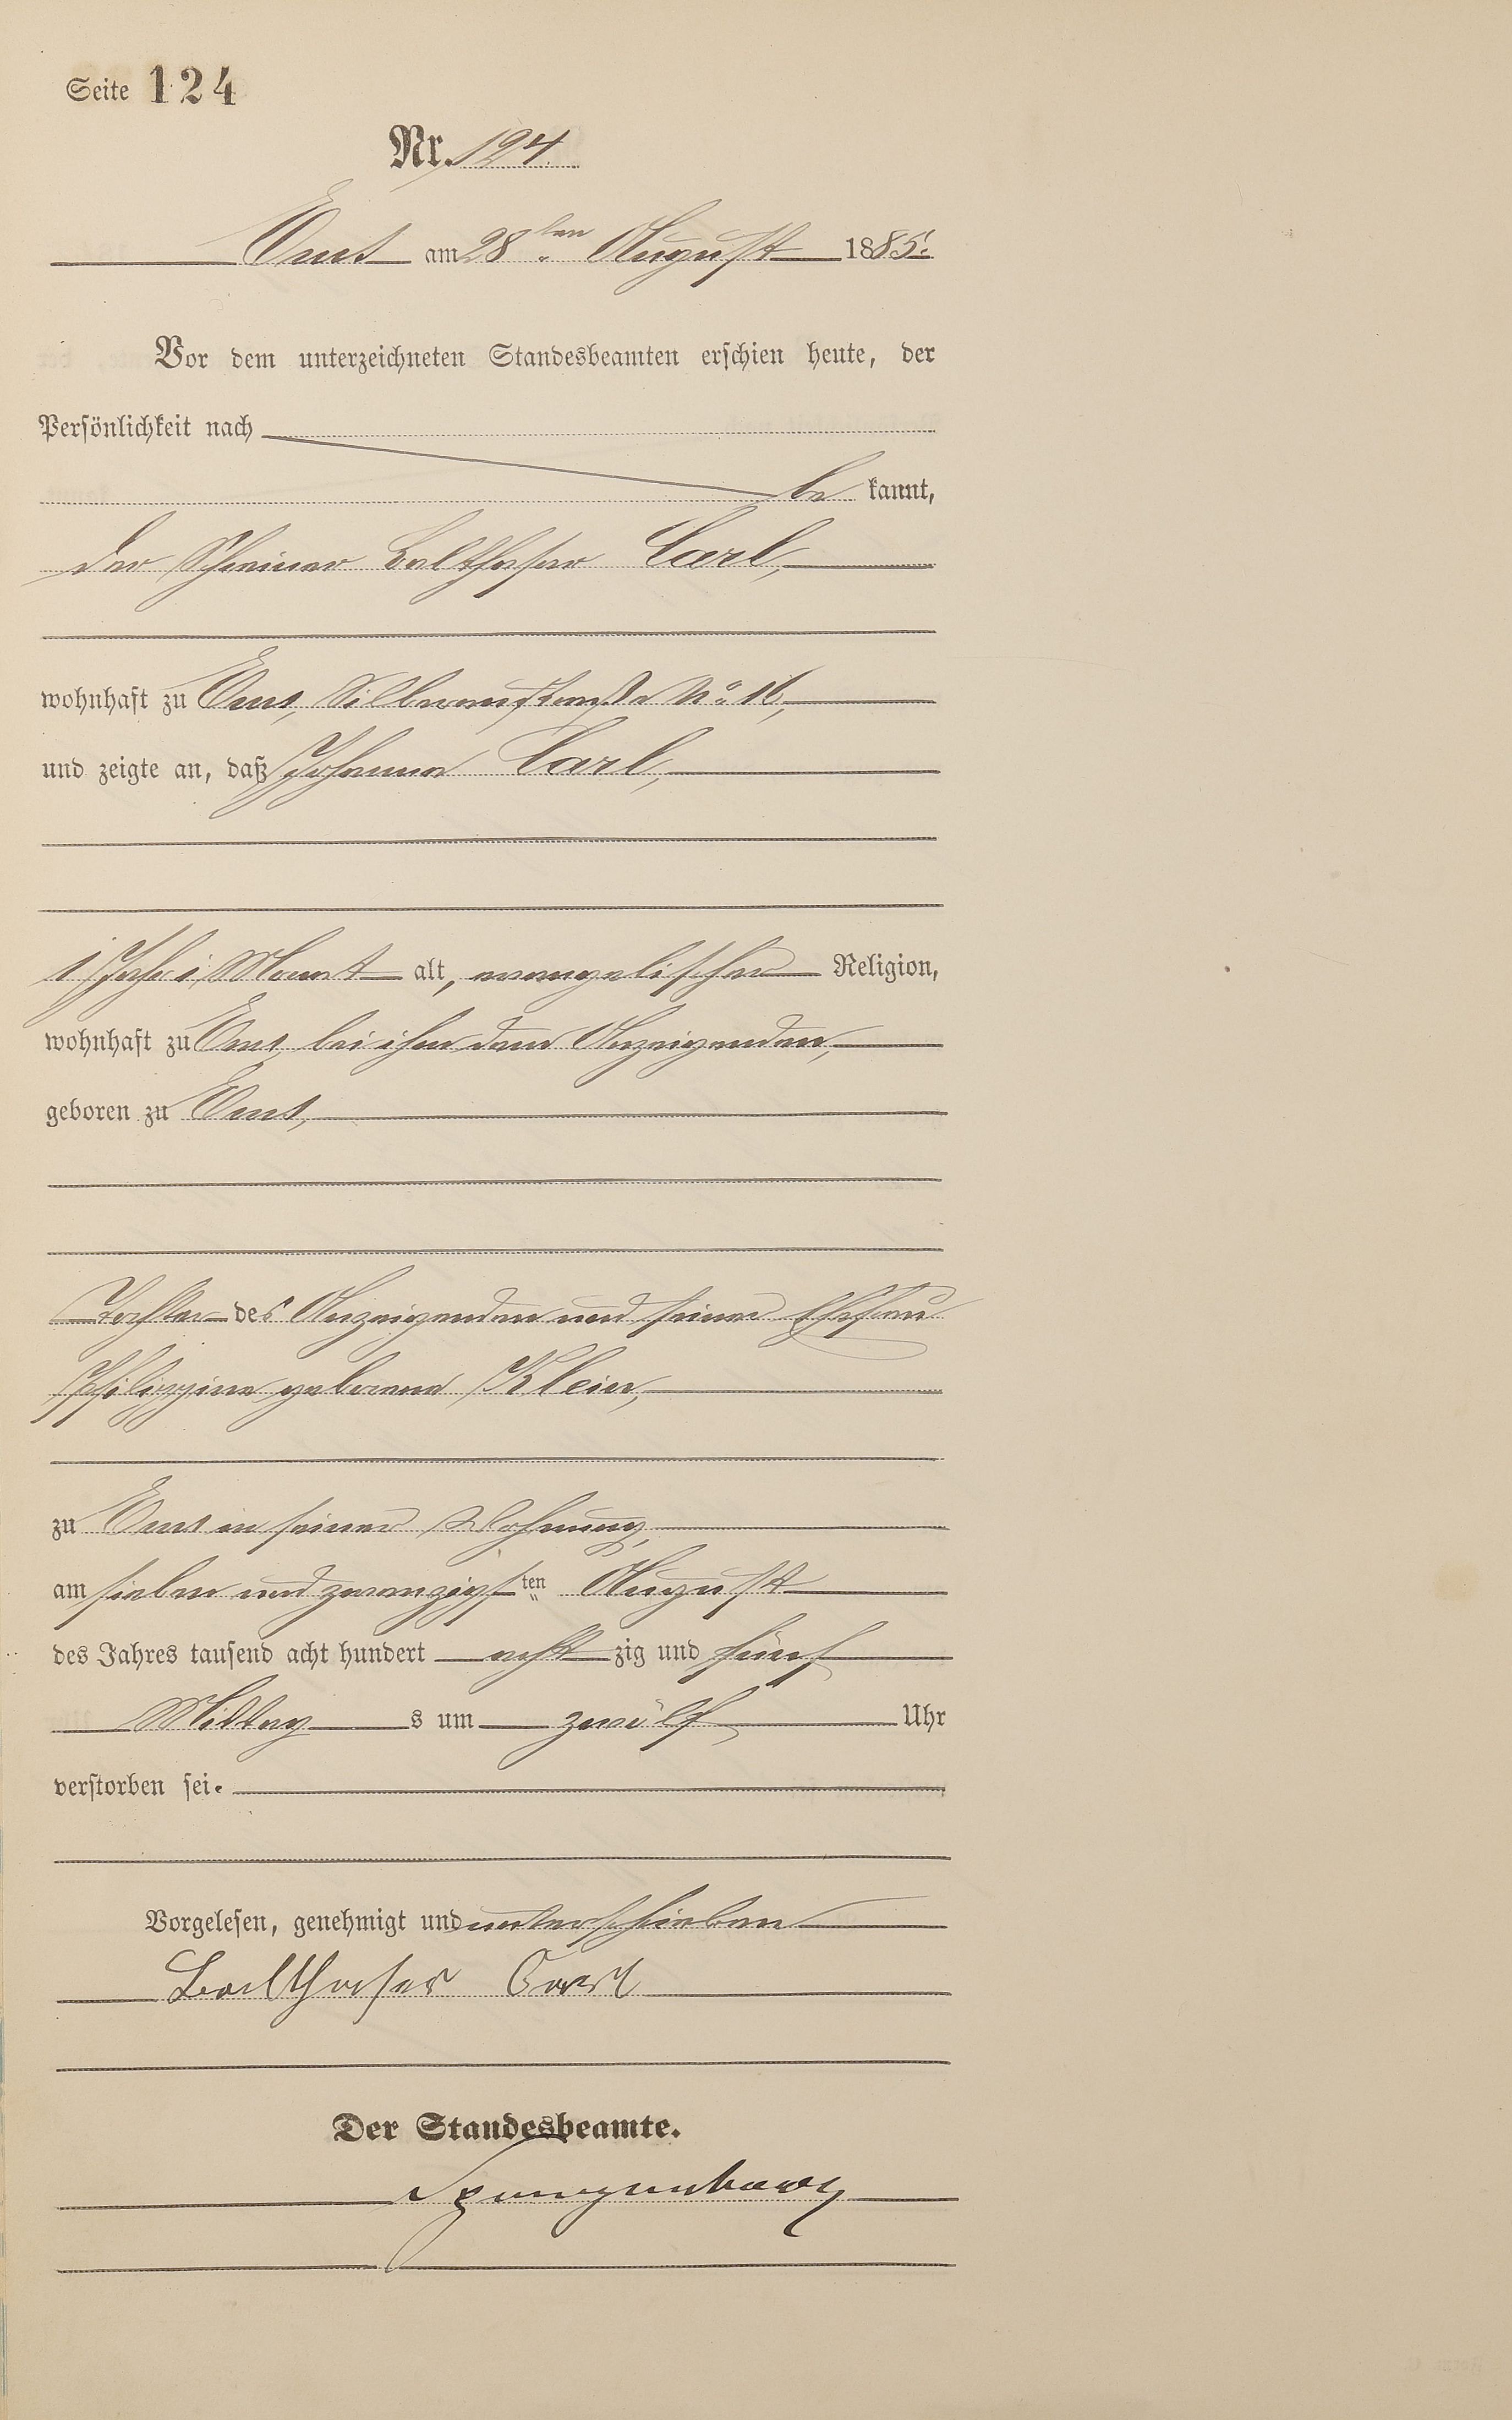 Seite 124
Nr. 124.
Ems am 28ten August 1885.
Vor dem unterzeichneten Standesbeamten erschien heute, der
Persönlichkeit nach
be kannt,
der Schreiner Balthasar Carl,
wohnhaft zu Ems, Silberaustraße No 16,
und zeigte an, daß Johanna Carl,
1 Jahr 1 Monat alt, evangelischer Religion,
wohnhaft zu Ems, bei ihm dem Anzeigenden,
geboren zu Ems,
Tochter des Anzeigenden und seiner Ehefrau
Philippine geborene Klein,
zu Ems in seiner Wohnung,
am sieben und zwanzigsten August
des Jahres tausend acht hundert acht zig und fünf
Mittag s um zwölf Uhr
verstorben sei.
Vorgelesen, genehmigt und unterschrieben
Balthaser Carl
Der Standesbeamte.
Spangenberg